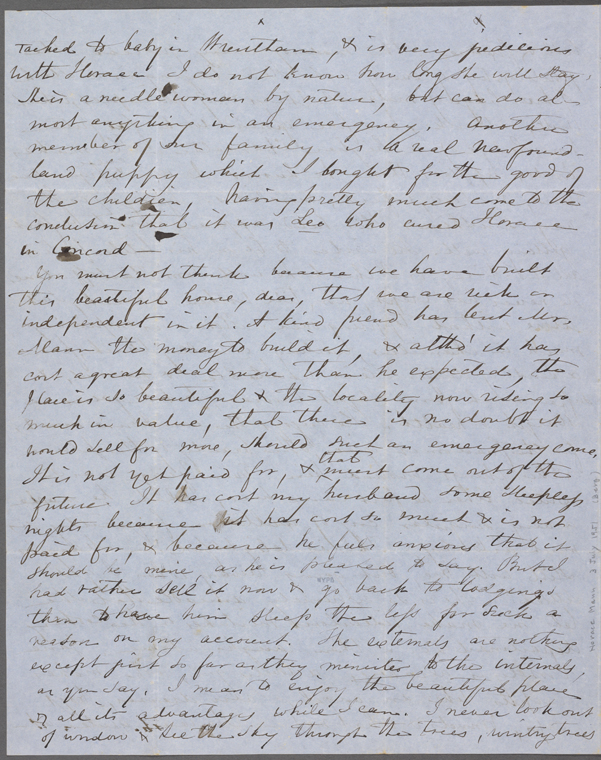 tached to baby in Wrentham, & is very judicious
with Horace I do not know how long she will stay.
She is a needlewoman by nature, but can do al-
most anything in an emergency. Another
member of our family is a real Newfound-
land puppy which I bought for the good of
the children, having pretty much come to the
conclusion that it was Leo who cured Horace
in Concord —
You must not think because we have built
this beautiful house, dear, that we are rich or
independent in it. A kind friend has lent Mr.
Mann the money to build it, & altho' it has
cost a great deal more than he expected, the
place is so beautiful & the locality now rising so
much in value, that there is no doubt it
would sell for more, should such an emergency come.
It is not yet paid for, & that must come out of the
future. It has cost my husband some sleepless
nights because it has cost so much & is not
paid for, & because he feels anxious that it
should be mine, as he is pleased to say. But I
had rather sell it now & go back to lodgings
than to have him sleep the less for such a
reason on my account. The externals are nothing
except just so far as they minister to the internals,
as you say. I mean to enjoy the beautiful place
& all its advantages while I can. I never look out
of window & see the sky through the trees, wintry trees
Horace Mann 3 July 1851